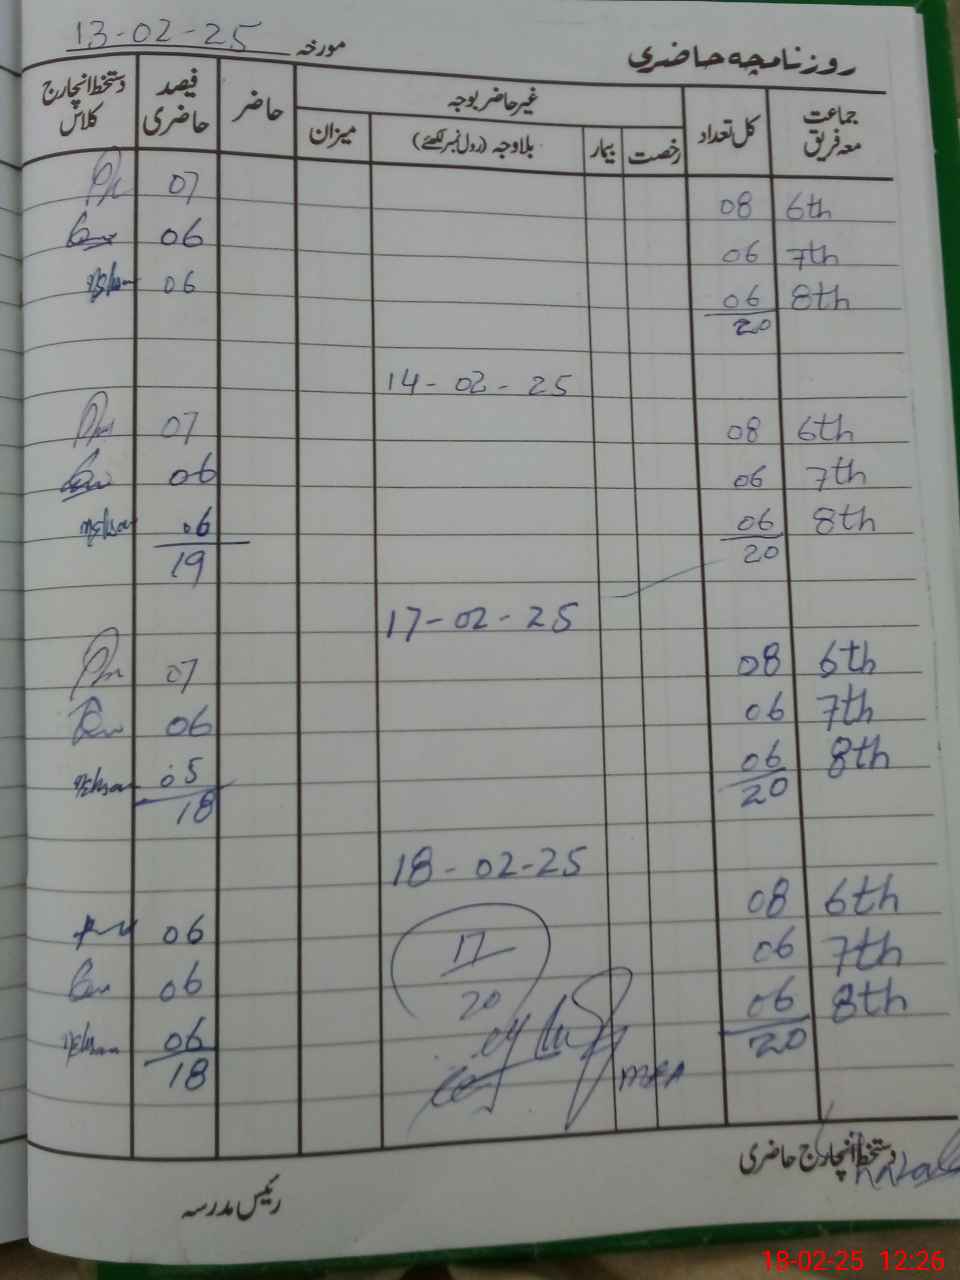 روزنامچہ حاضری مورخہ 13-02-25
جماعت معہ فریق کل تعداد غیر حاضر بوجہ حاضر فیصد حاضری دستخط انچارج کلاس
رخصت بیمار بلاوجہ (رول نمبر لکھئے) میزان
6th 08 07
7th 06 06
8th 06 06
20
14-02-25
6th 08 07
7th 06 06
8th 06 06
20 19
17-02-25
6th 08 07
7th 06 06
8th 06 05
20 18
18-02-25
6th 08 06
7th 06 17 06
8th 06 20 06
20 18
MEA
دستخط انچارج حاضری
رئیس مدرسہ
18-02-25 12:26